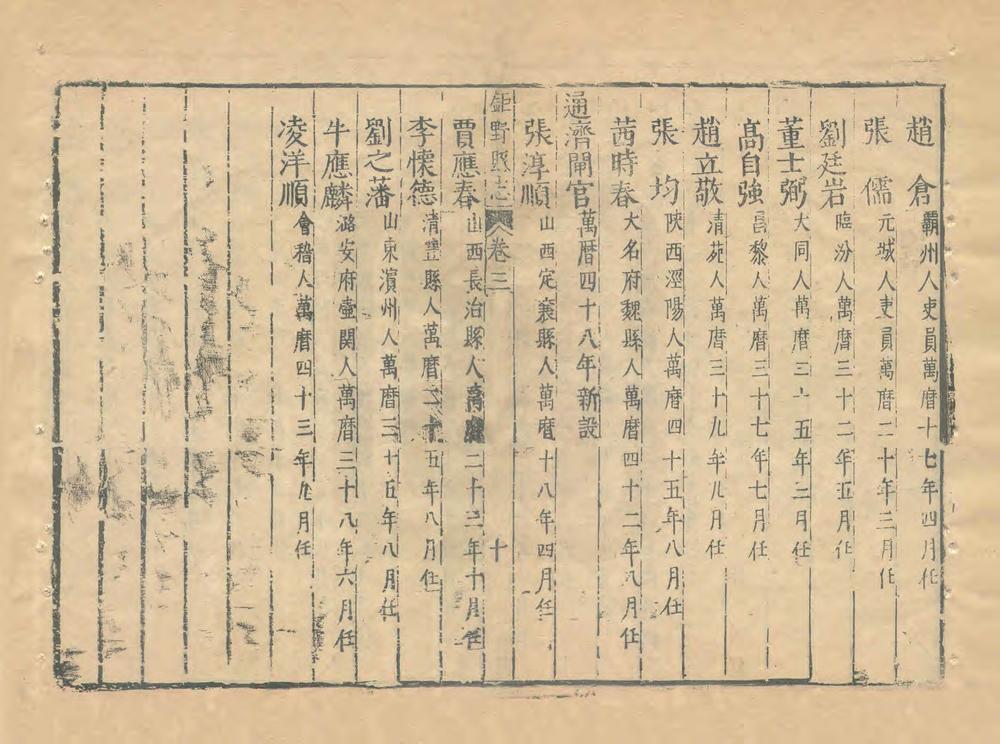 趙倉霸州人吏員萬曆十七年四月任
張儒元城人吏員萬曆二十年三月任
劉廷岩臨汾人萬曆三十二年五月任
董士弼大同人萬曆三十五年二月任
高自強昌黎人萬曆三十七年七月任
趙立敬清苑人萬曆三十九年九月任
張均陝西涇陽人萬曆四十五年八月任
茜時春大名府魏縣人萬曆四十二年八月任
通濟閘官萬曆四十八年新設
張淳順山西定襄縣人萬曆十八年四月任
鉅野縣志 卷三 十
賈應春山西長治縣人萬曆二十三年十月任
李懷德清豐縣人萬曆二十五年八月任
劉之藩山東濱州人萬曆三十五年八月任
牛應麟潞安府壺関人萬曆三十八年六月任
凌洋順會稽人萬曆四十三年九月任